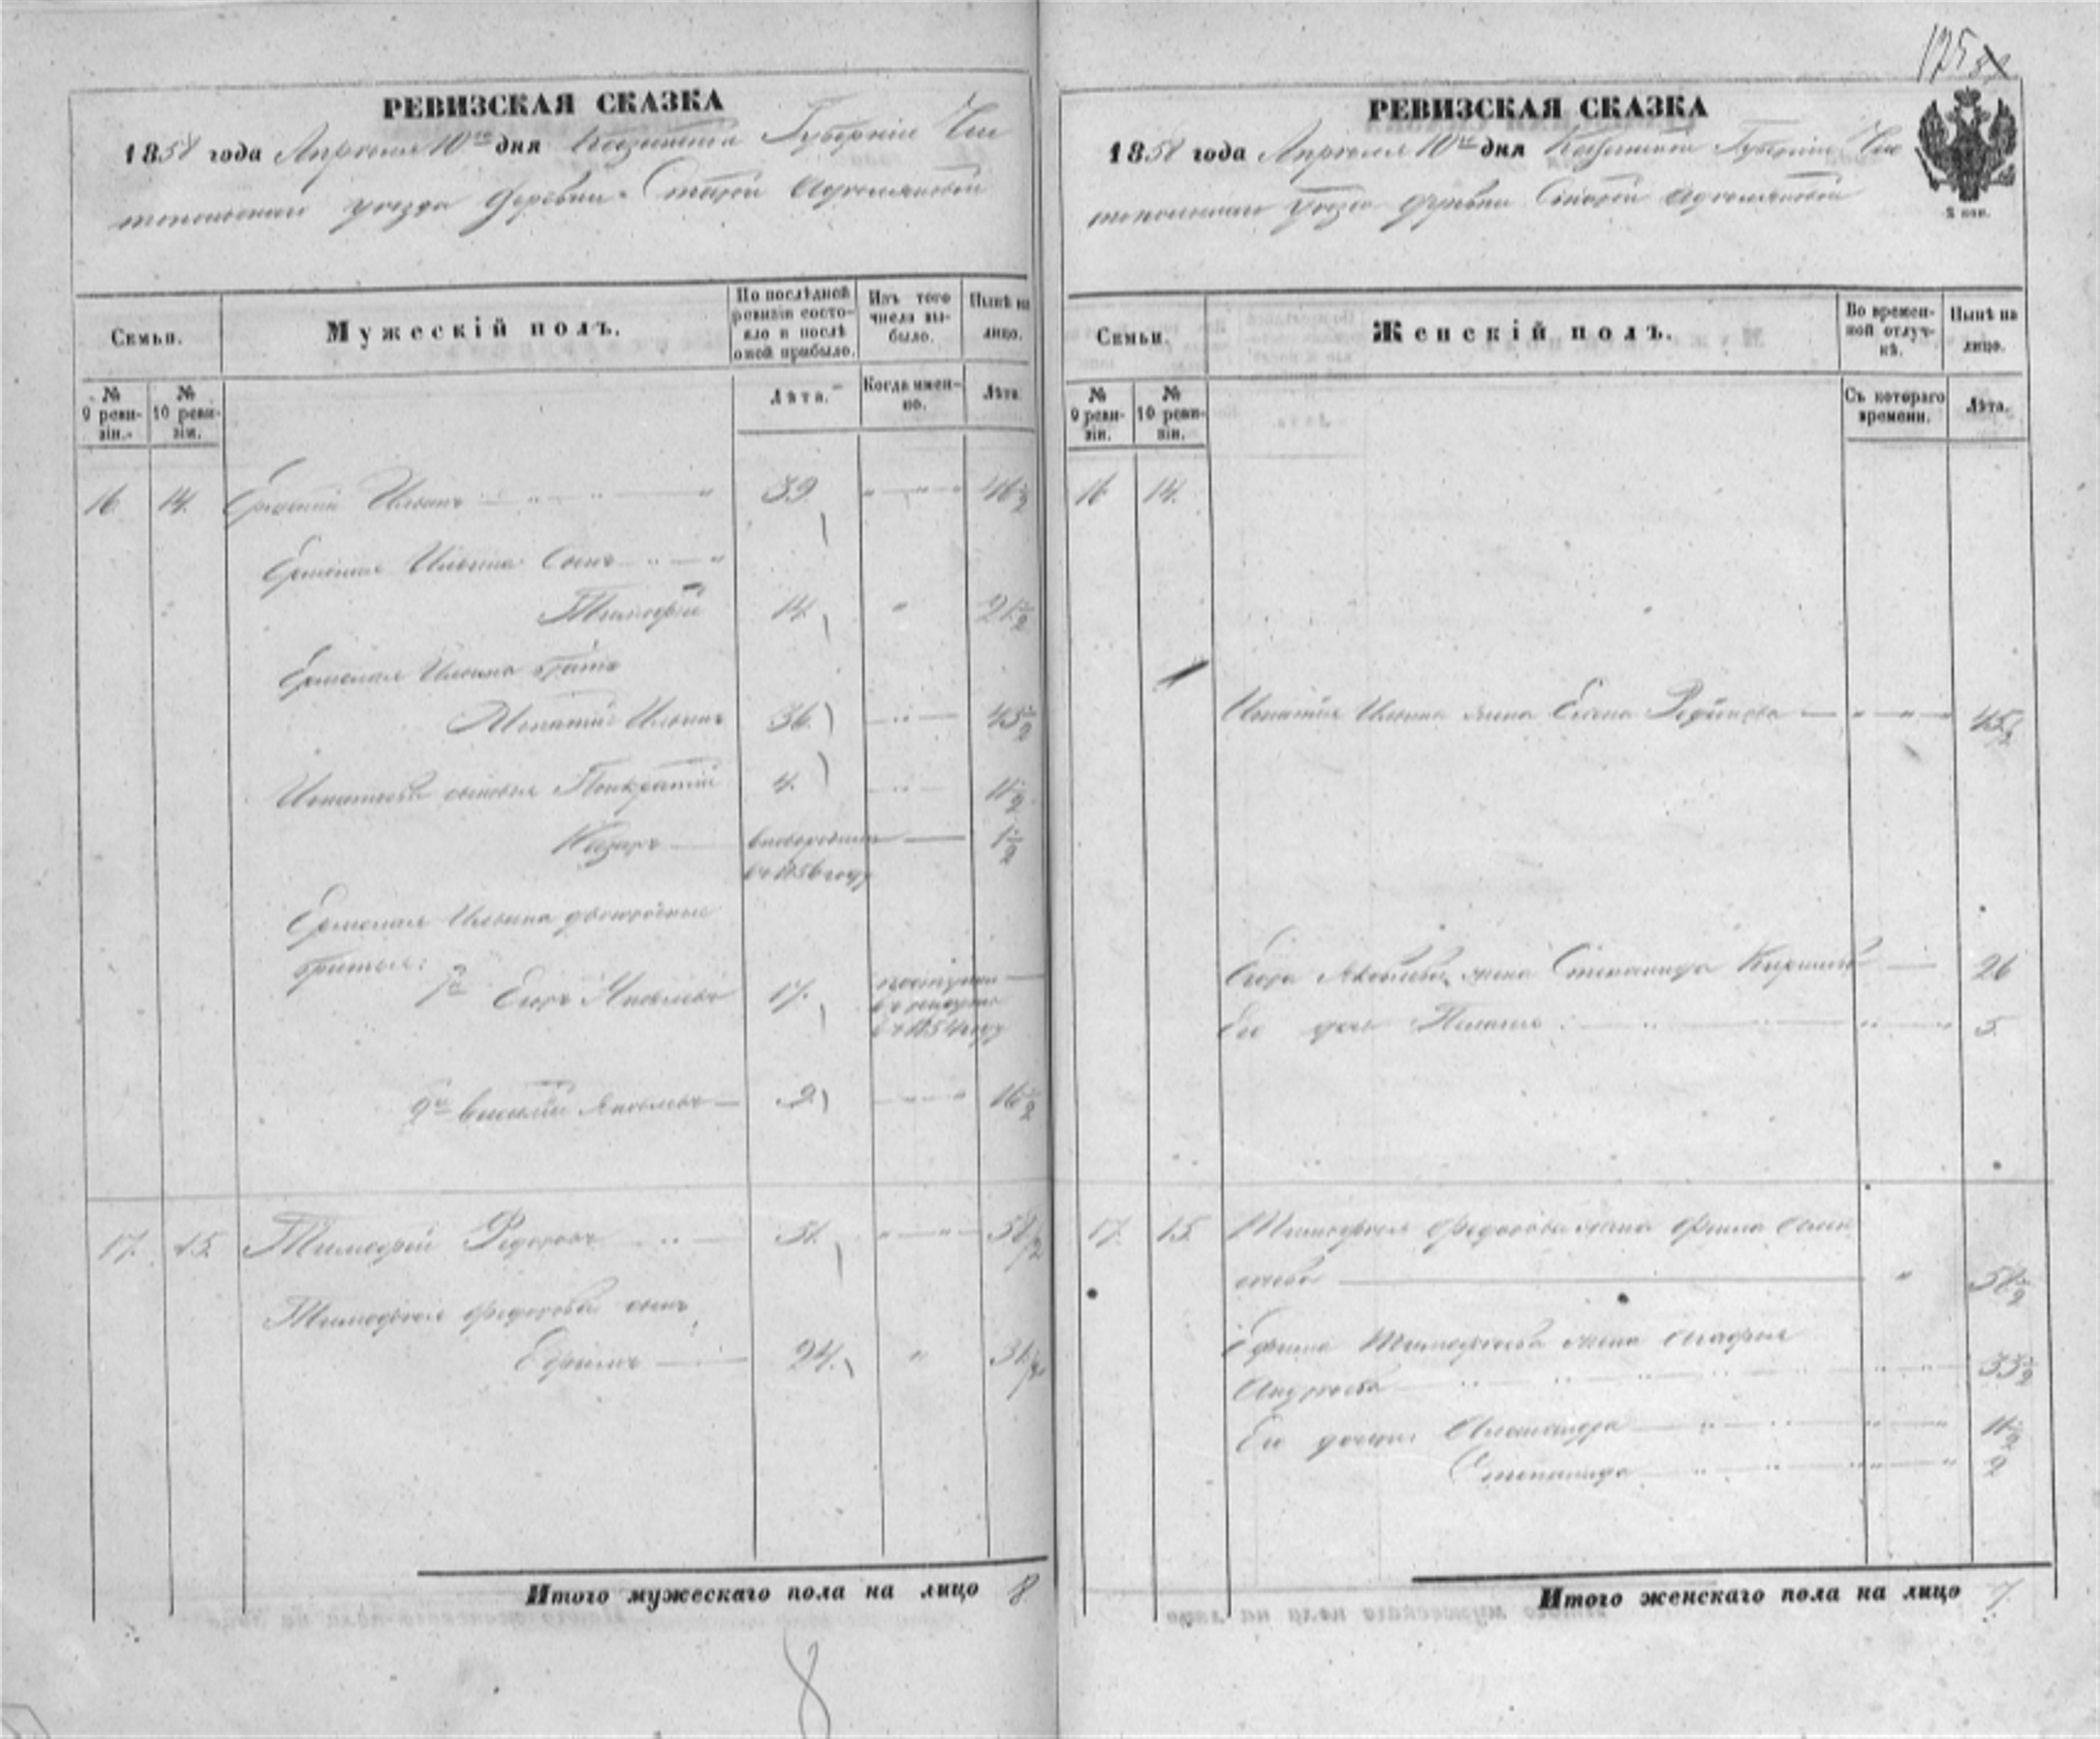 125
РЕВИЗСКАЯ СКАЗКА
1858 года Апреля 10го дня Казанской Губернiи Чис
топольскаго уезда деревни Старой Адамшиковой
Семьи.
Мужескiй полъ.
По послѣдней ревизiи состояло и послѣ оной прибыло.
Изъ того числа выбыло.
Нынѣ на лицо.
№ 9 ревизiи.
№ 10 ревизiи.
Лѣта.
Когда именно.
Лѣта.
16 14. Ильинъ 39 46½
Ермолая Ильина Сынъ
Тимофей 14. 21½
Ермолая Ильина братъ
Игнатiй Ильинъ 36. 43½
Игнатьевы сыновья Панкратiй 4. 11½
Назаръ новорожденъ 1½
въ 1856 году
Ермолая Ильина двоюродные
братья:
1й Егоръ Яковлевъ 17. поступилъ
въ рекруты
въ 1854 году
2й Василiй Яковлевъ 9. 16½
17. 15. Тимофей Федоровъ 51. 58½
Тимофея Федорова сынъ
Ефимъ 24. 31½
Итого мужескаго пола на лицо 8
8
РЕВИЗСКАЯ СКАЗКА
1858 года Апреля 10го дня Казанской Губернiи Чис
топольскаго уезда деревни Старой Адамшиковой
2 коп.
Семьи.
Женскiй полъ.
Во временной отлучкѣ.
Нынѣ на лицо.
№ 9 ревизiи.
№ 10 ревизiи.
Съ котораго времени.
Лѣта.
16 14.
Игнатiя Ильина жена Елена 45½
Егора Яковлева жена Степанида 26
Ея дочь 5.
17. 15. Тимофея Федорова жена
58½
Ефима Тимофеева жена Агафья
Андреева 33½
Ея дочери Александра 11½
Степанида 2
Итого женскаго пола на лицо 7.